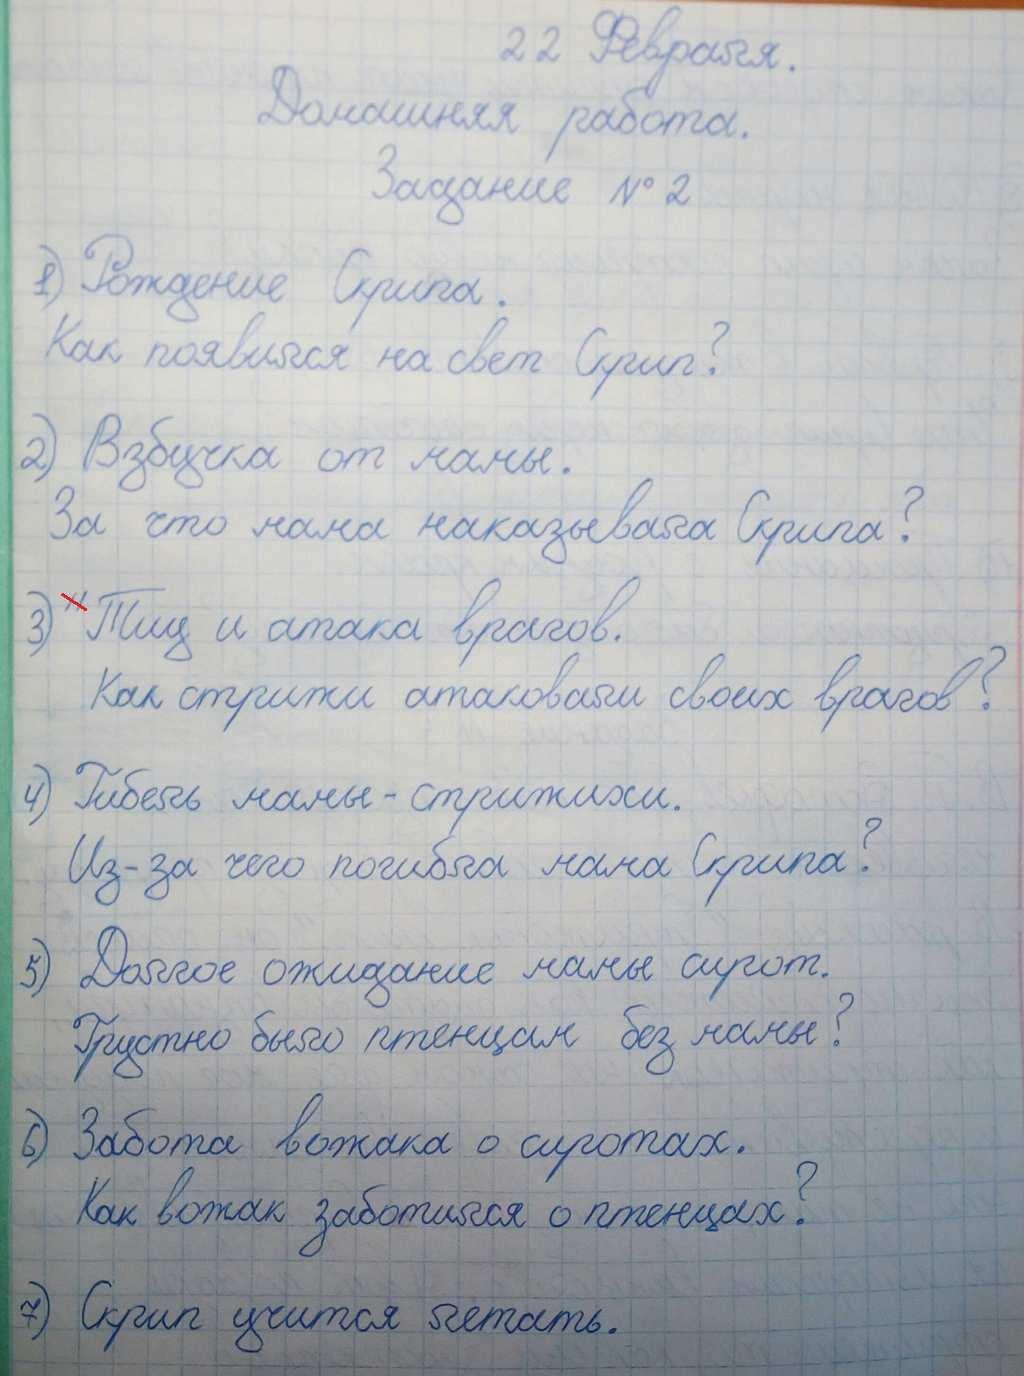 22 Февраля.
Домашняя работа.
Задание № 2
1) Рождение Скрипа.
Как появился на свет Скрип?
2) Взбучка от мамы.
За что мама наказывала Скрипа?
3) "Тиц и атака врагов.
Как стрижи атаковали своих врагов?
4) Гибель мамы-стрижихи.
Из-за чего погибла мама Скрипа?
5) Долгое ожидание мамы сирот.
Грустно было птенцам без мамы?
6) Забота вожака о сиротах.
Как вожак заботился о птенцах?
7) Скрип учится летать.